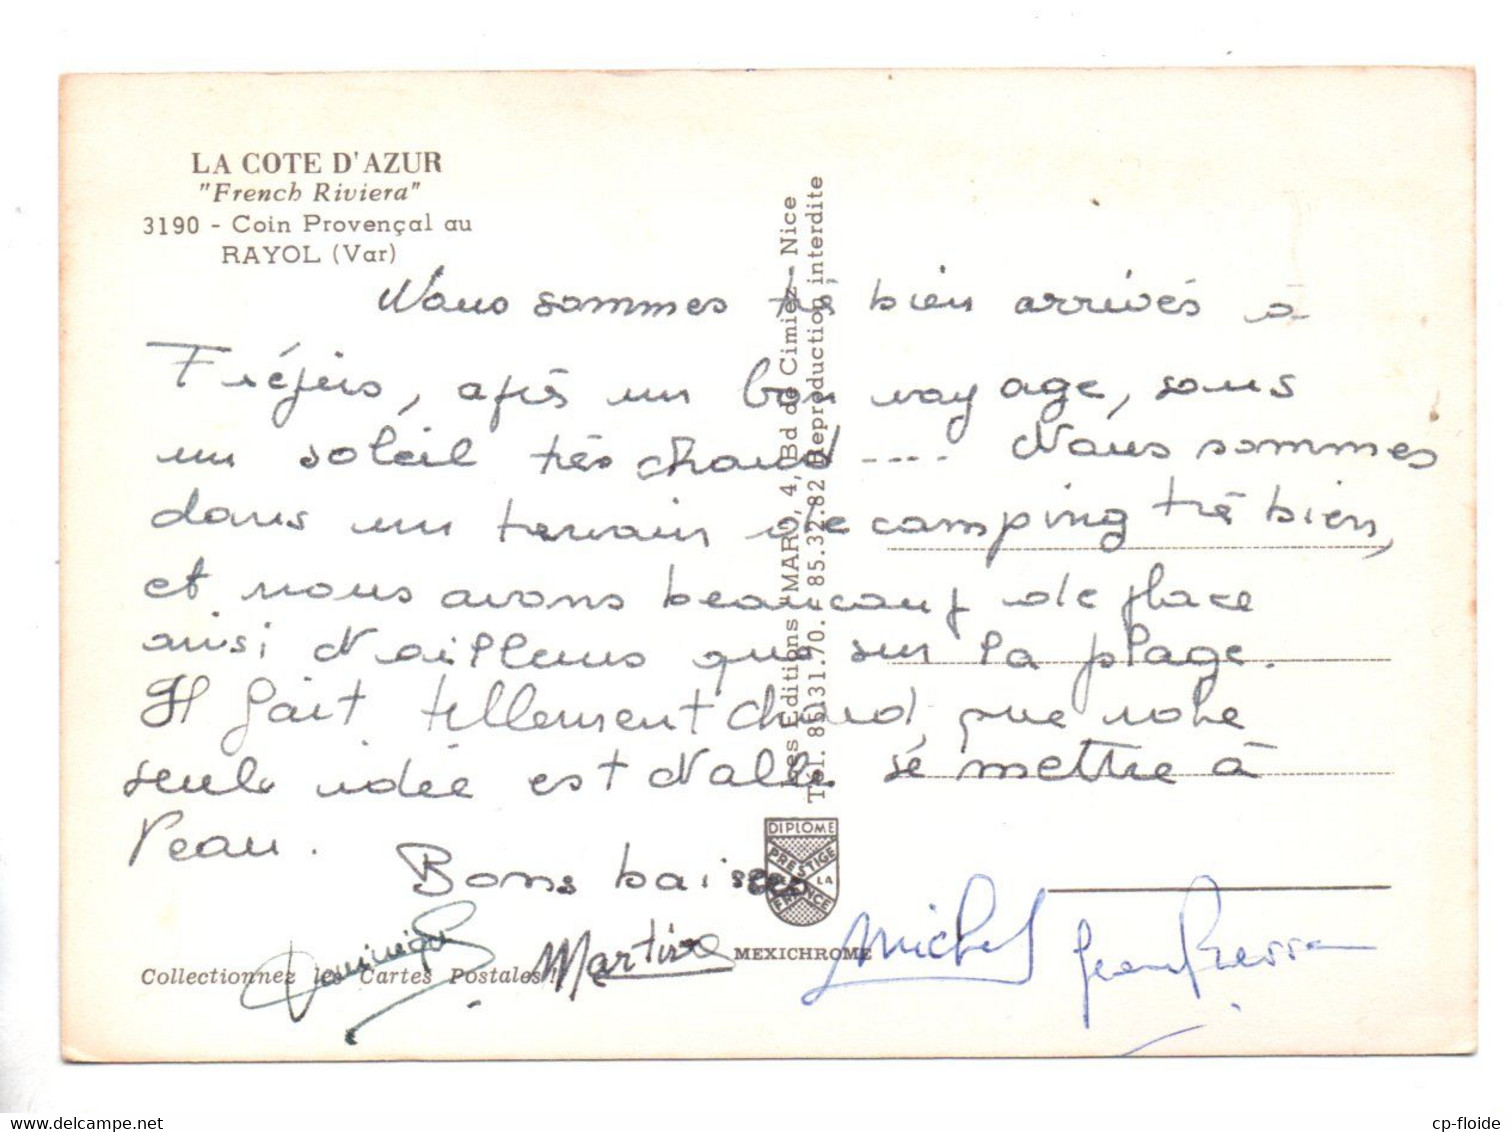 LA COTE D'AZUR
"French Riviera"
3190 - Coin Provençal au
RAYOL (Var)
Nous sommes très bien arrivés à
Fréjus, après un bon voyage, sous
un soleil très chaud .... Nous sommes
dans un terrain de camping très bien,
et nous avons beaucoup de place
ainsi d'ailleurs que sur la plage.
Il fait tellement chaud, que notre
seule idée est d'aller se mettre à
l'eau.
Bons baisers
Dominique
Martine
Michel
Jean Pierre
Collectionnez les Cartes Postales !
Les Editions "MAR", 4, Bd de Cimiez - Nice
Tél. 85.31.70. - 85.32.82 Reproduction interdite
DIPLOME
PRESTIGE
LA
FRANCE
MEXICHROME
www.delcampe.net
cp-floide